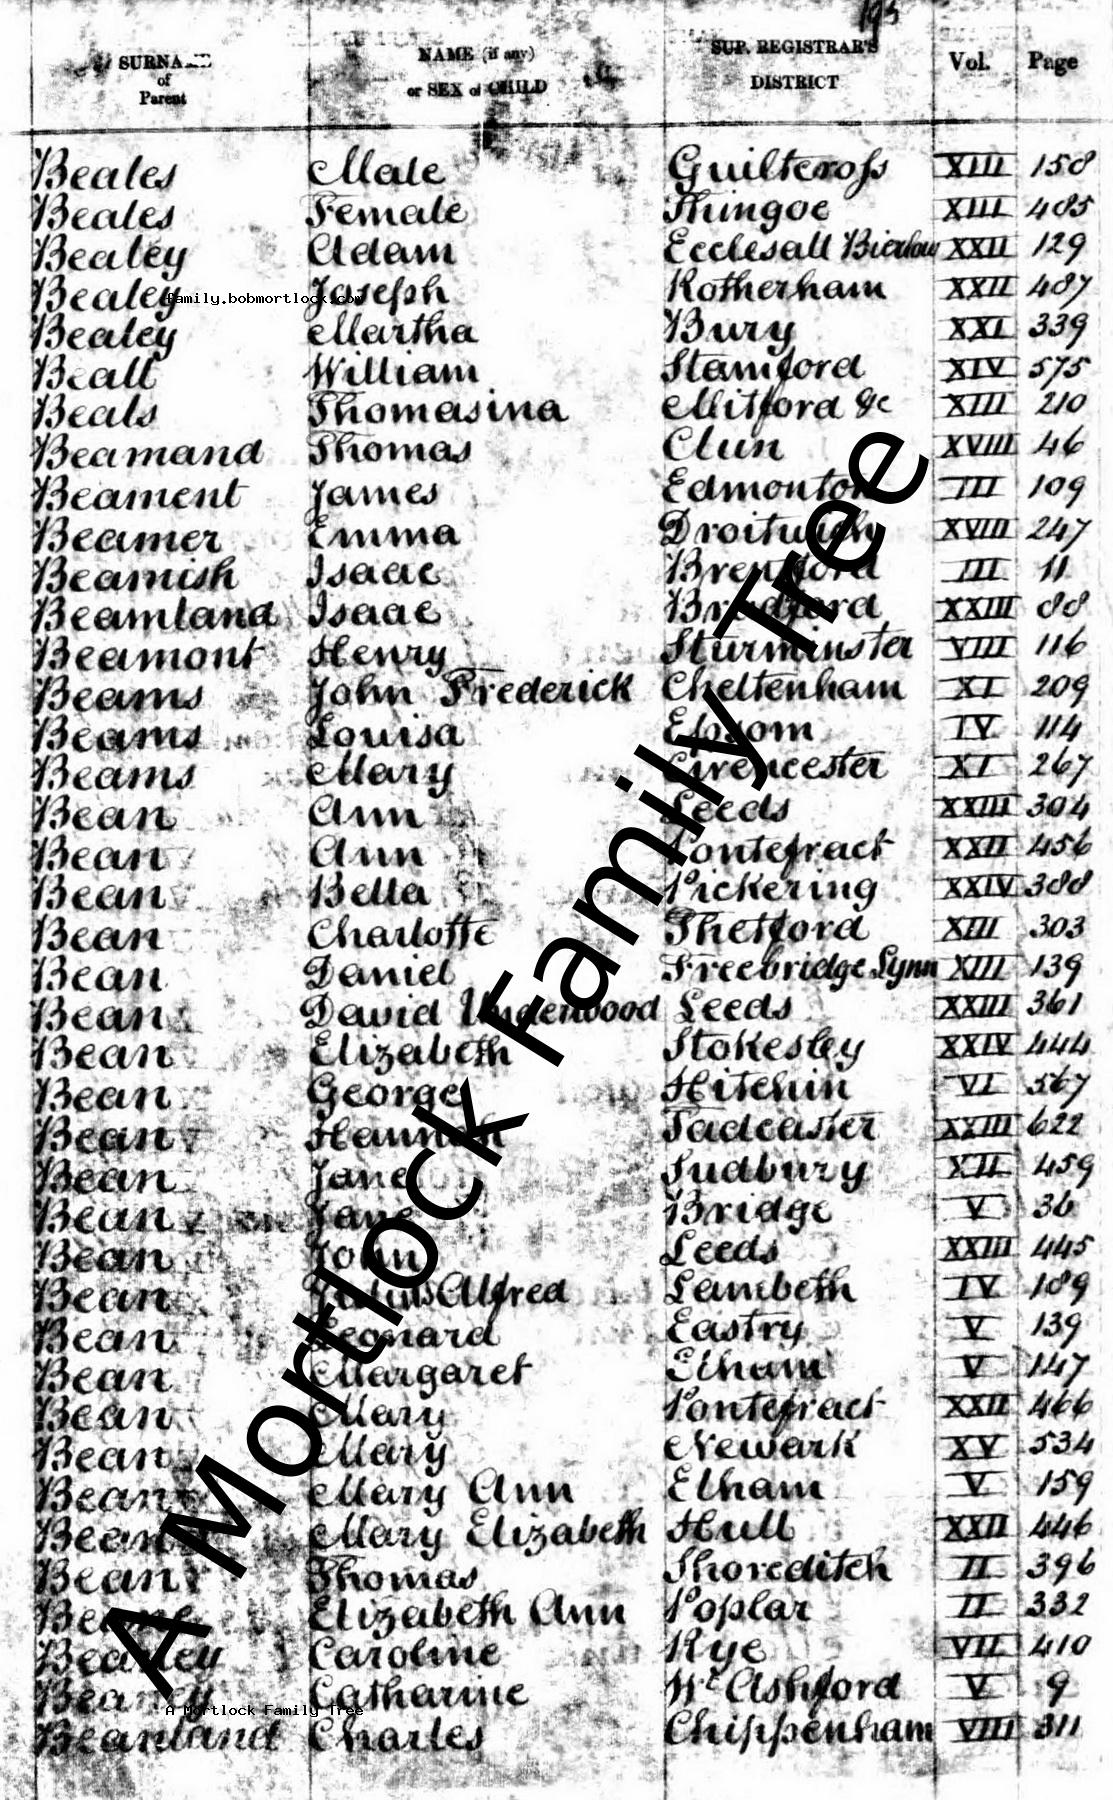 195
SURNAME of Parent NAME (if any) or SEX of CHILD SUP. REGISTRAR'S DISTRICT Vol. Page
Beales Male Guiltcross XIII 158
Beales Female Thingoe XIII 485
Bealey Adam Ecclesall Bierlow XXII 129
Bealey Joseph Rotherham XXII 487
family.bobmortlock.com
Bealey Martha Bury XXI 339
Beall William Stamford XIV 575
Beals Thomasina Mitford &c XIII 210
Beamand Thomas Clun XVIII 46
Beament James Edmonton III 109
Beamer Emma Droitwich XVIII 247
Beamish Isaac Brentford III 11
Beamland Isaac Bradford XXIII 88
Beamont Henry Sturminster VIII 116
Beams John Frederick Cheltenham XI 209
Beams Louisa Epsom IV 114
Beams Mary Cirencester XI 267
Bean Ann Leeds XXIII 304
Bean Ann Pontefract XXII 456
Bean Bella Pickering XXIV 388
Bean Charlotte Thetford XIII 303
Bean Daniel Freebridge Lynn XIII 139
Bean David Underwood Leeds XXIII 361
Bean Elizabeth Stokesley XXIV 444
Bean George Hitchin VI 567
Bean Hannah Tadcaster XXIII 622
Bean Jane Sudbury XII 459
Bean Jane Bridge V 36
Bean John Leeds XXIII 445
Bean Alfred Lambeth IV 189
Bean Leonard Eastry V 139
Bean Margaret Elham V 147
Bean Mary Pontefract XXII 466
Bean Mary Newark XV 534
Bean Mary Ann Elham V 159
Bean Mary Elizabeth Hull XXII 446
Bean Thomas Shoreditch II 396
Elizabeth Ann Poplar II 332
Caroline Rye VII 410
Catharine Wt Ashford V 9
A Mortlock Family Tree
Beanland Charles Chippenham VIII 311
A Mortlock Family Tree